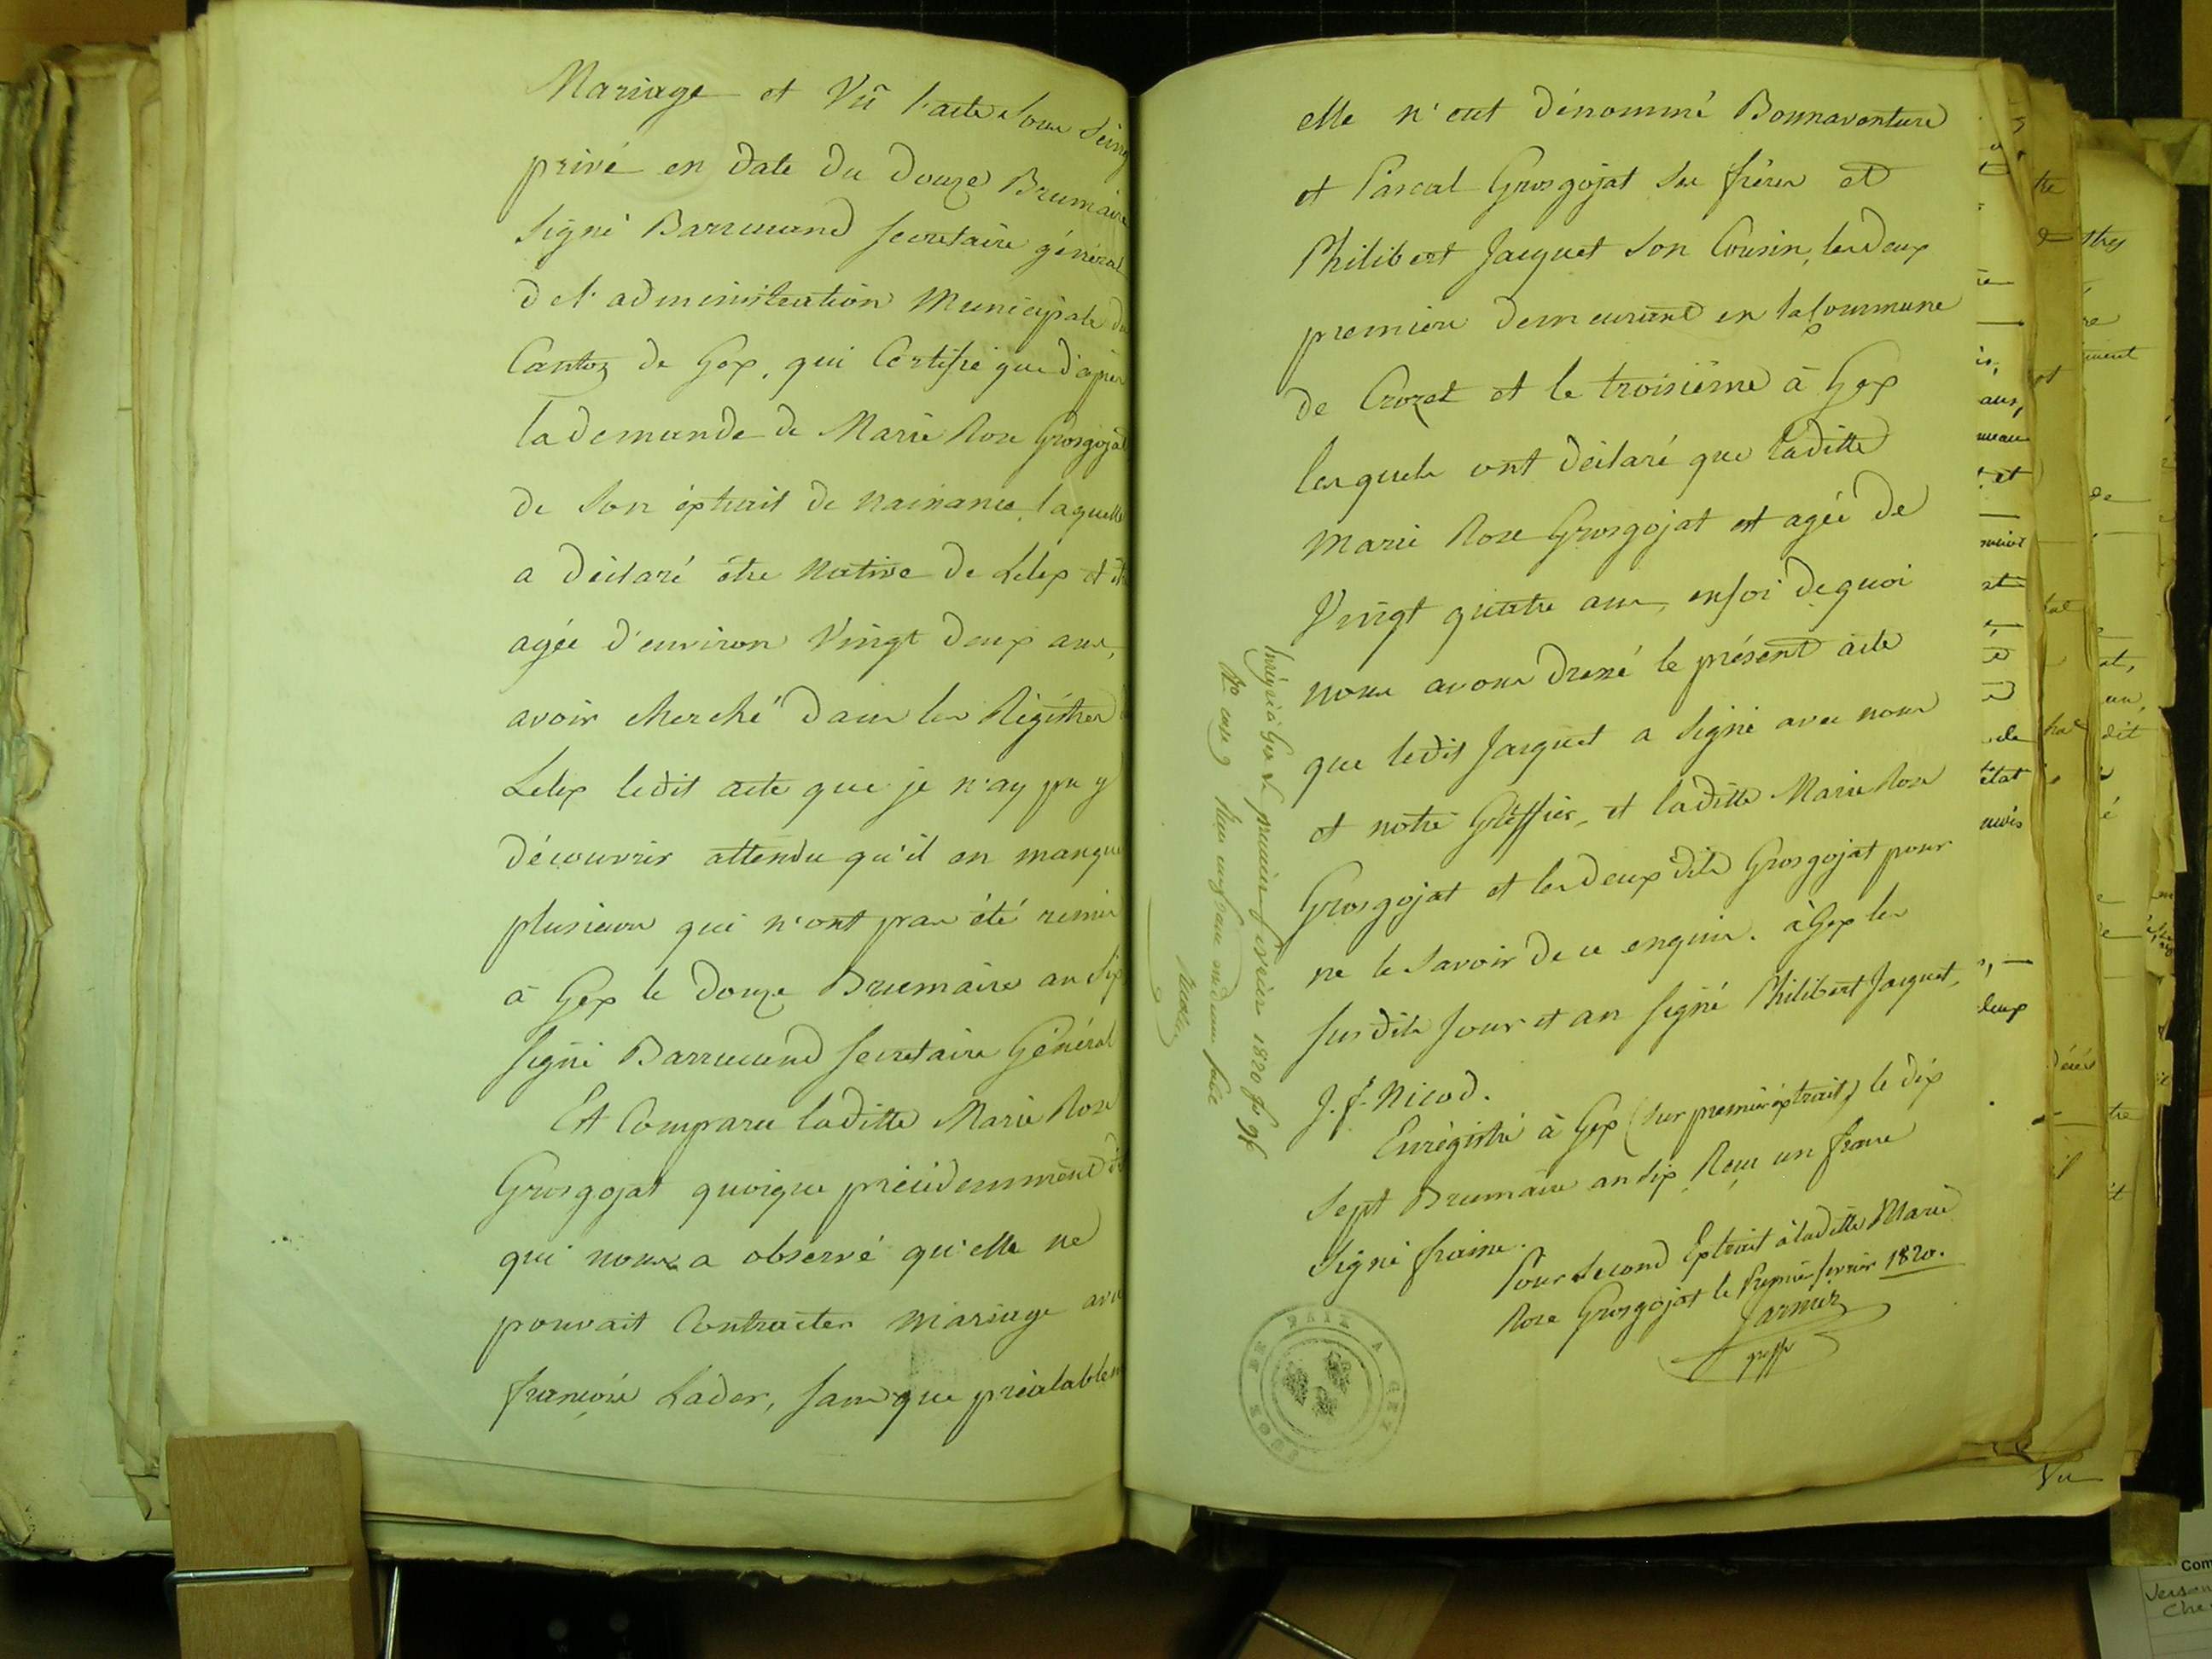 Mariage et Vû l'acte sous seing
privé en date du douze Brumaire
signé Barruand secretaire général
del'administration Municipale du
Canton de Gex, qui Certifie que d'après
lademande de Marie Rose Grosgojat
de son éxtrait de naissance, laquelle
a déclaré être native de Lelex et
agée d'environ Vingt deux ans,
avoir cherché dans les Régistres
Lelex ledit acte que je n'ay pu y
découvrir attendu qu'il en manque
plusieurs qui n'ont pas été remis
à Gex le douze Brumaire an dix
signé Barruand secretaire Général
Est Comparue laditte Marie Rose
Grosgojat quoique précédemment
qui nous a observé qu'elle ne
pouvait Contracter mariage avec
françois Lader, sans que préalablem
elle n'eut dénommé Bonnaventure
et Pascal Grosgojat ses frères et
Philibert Jacquet son Cousin, les deux
premiers demeurant en la Commune
de Crozet et le troisiême à Gex
lesquels ont déclaré que laditte
Marie Rose Grosgojat est agée de
Vingt quatre ans, enfoi dequoi
nous avons dressé le présent acte
que ledit Jacquet a signé avec nous
et notre Gréffier, et laditte Marie Rose
Grosgojat et les deux dits Grosgojat pour
ne le savoir de ce enquis. à Gex les
susdits jour et an signé Philibert Jacquet,
J. f. Nicod.
Enrégistré à Gex (sur premier éxtrait) le dix
sept Brumaire an dix Reçu un franc
signé fraisne.
Pour second Extrait à laditte Marie
Rose Grosgojat le Premier fevrier 1820.
greffr
JUGE DE PAIX A GEX
Enrégtré à Gex le premier février 1820 fo 96
Vu